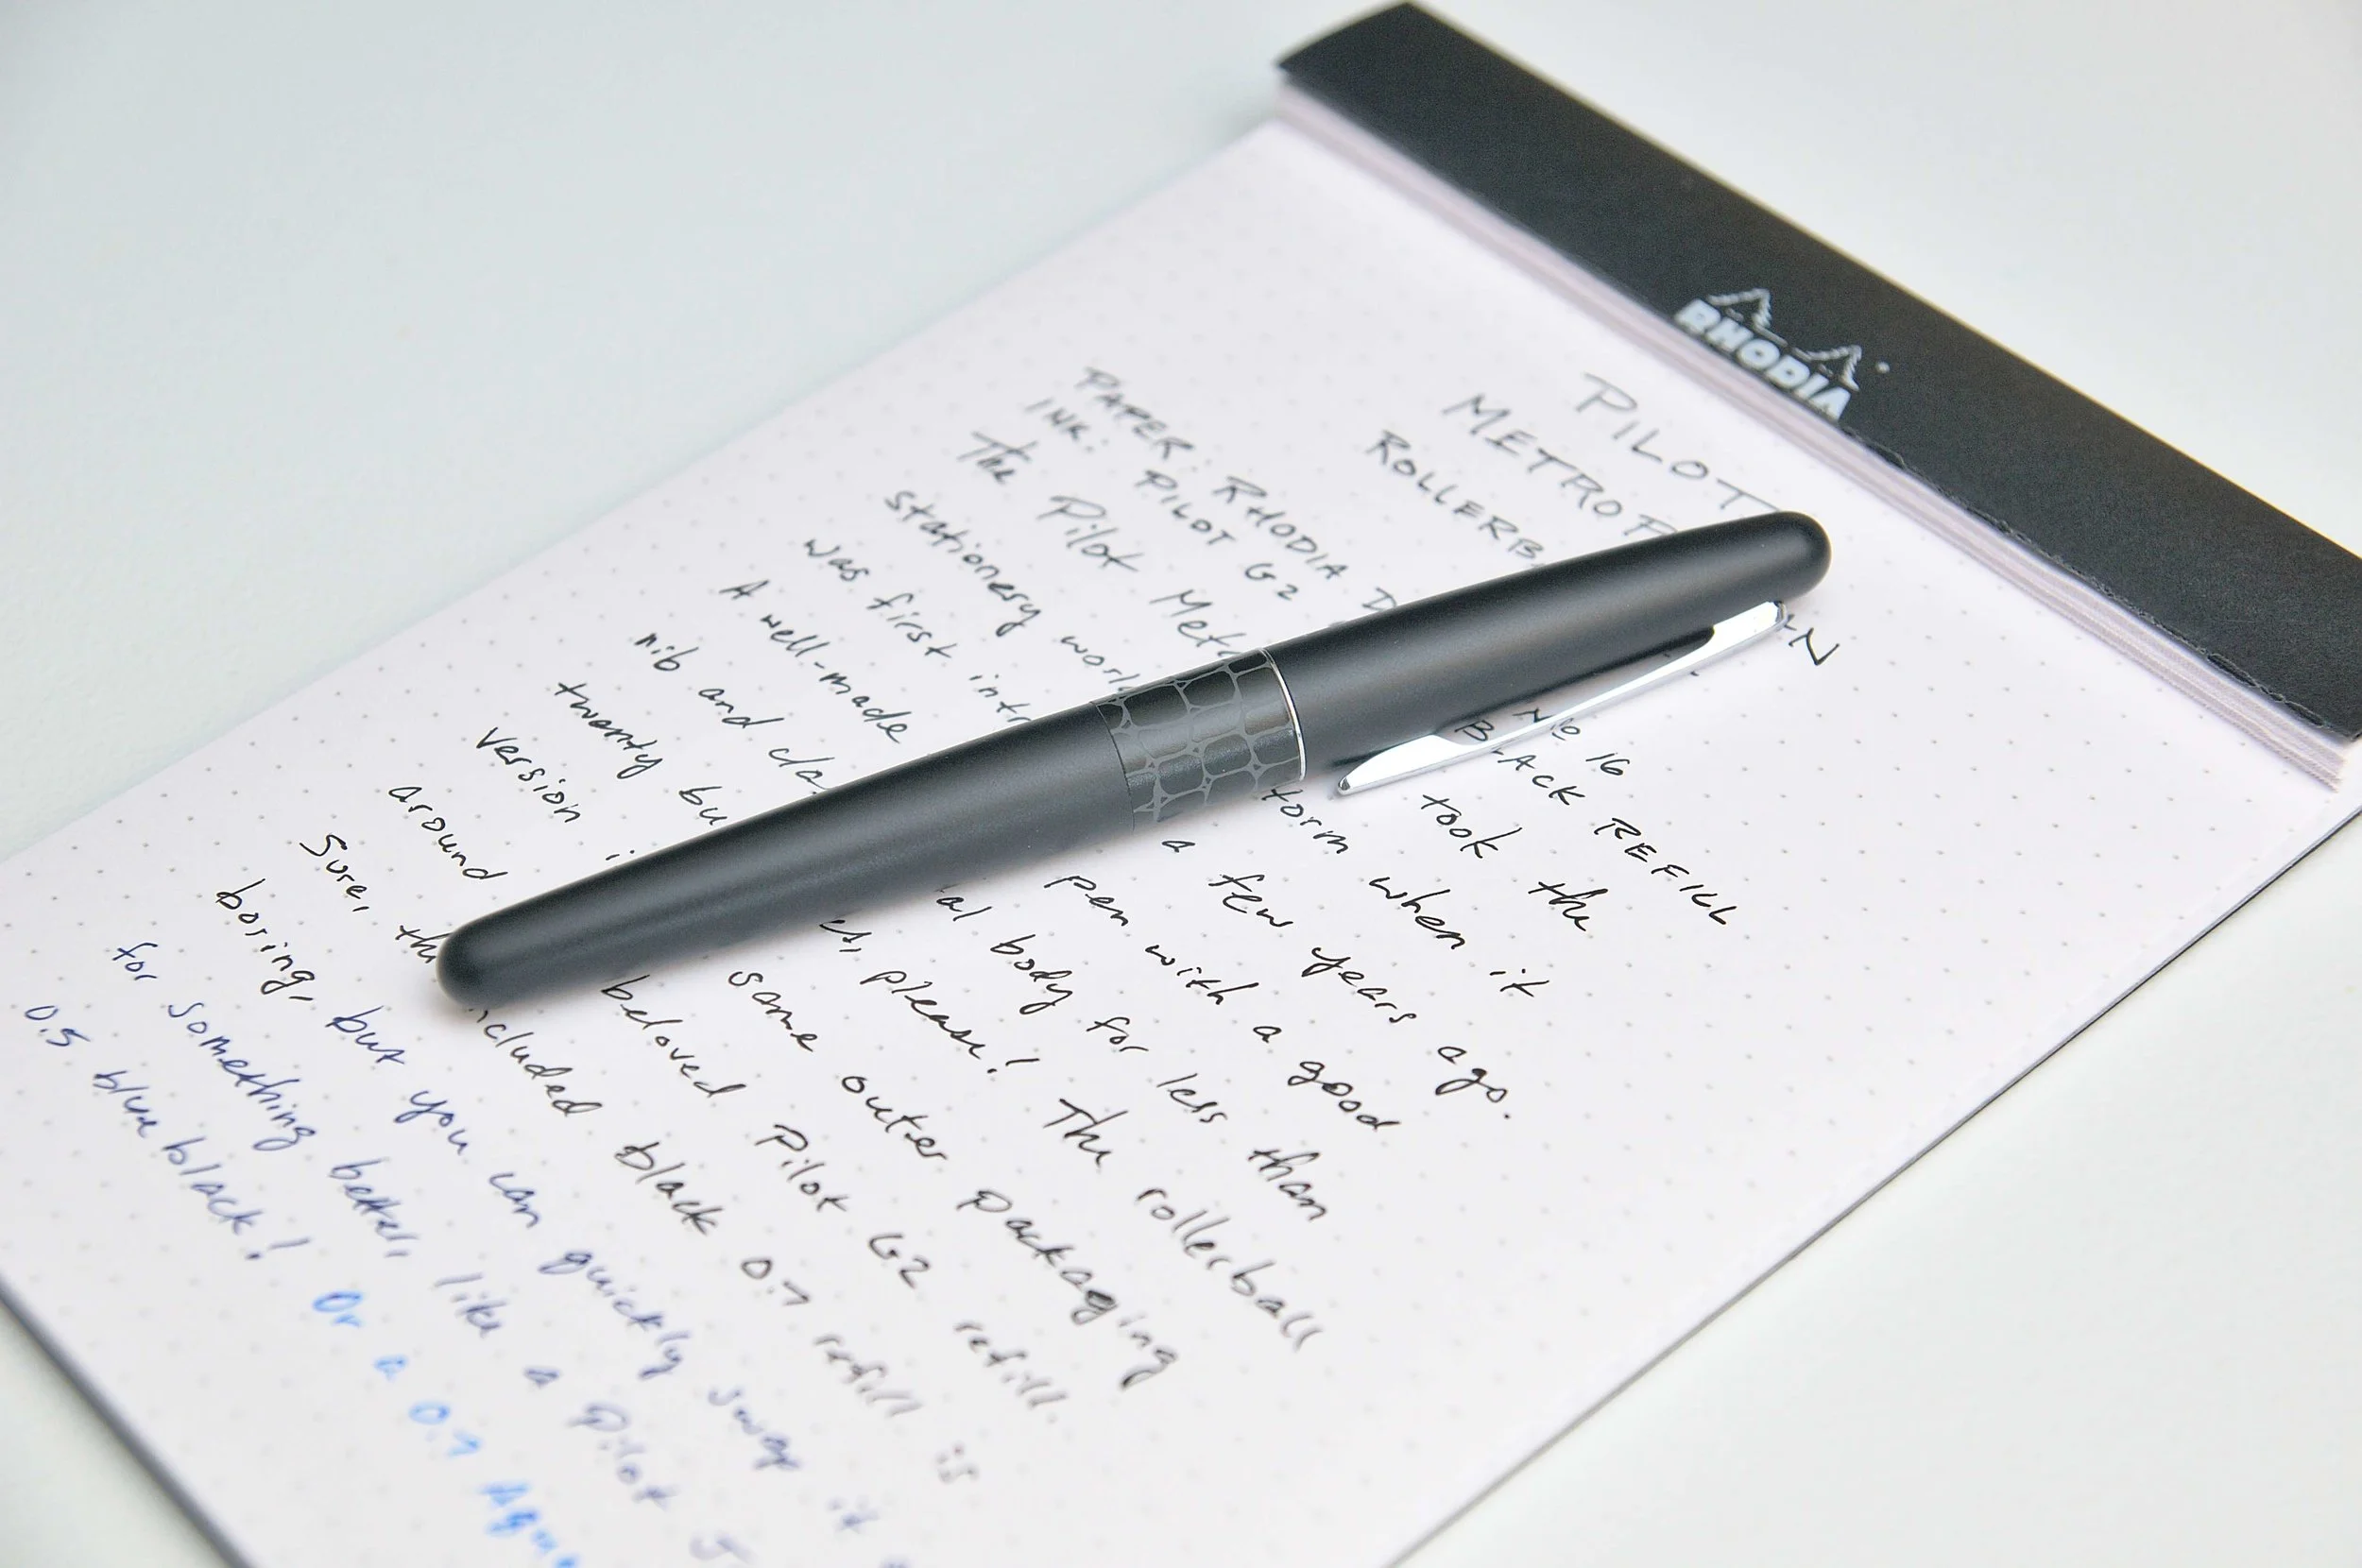 RHODIA
PILOT
METROP N
ROLLERB
PAPER: RHODIA D No 16
INK: PILOT G2 BLACK REFILL
The Pilot Metr took the
stationery worl torm when it
was first intr a few years ago.
A well-made pen with a good
nib and cla al body for less than
twenty bu es, please! The rollerball
version i same outer packaging
around beloved Pilot G2 refill.
Sure, th cluded black 0.7 refill is
boring, but you can quickly swap it
for something better, like a Pilot J
0.5 blue black! Or a 0.7